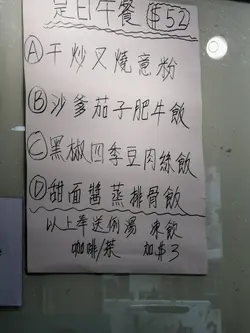 是日午餐 $52
Ⓐ干炒叉燒意粉
Ⓑ沙爹茄子肥牛飯
Ⓒ黑椒四季豆肉絲飯
Ⓓ甜面醬蒸排骨飯
以上奉送例湯 凍飲
咖啡/茶 加$3